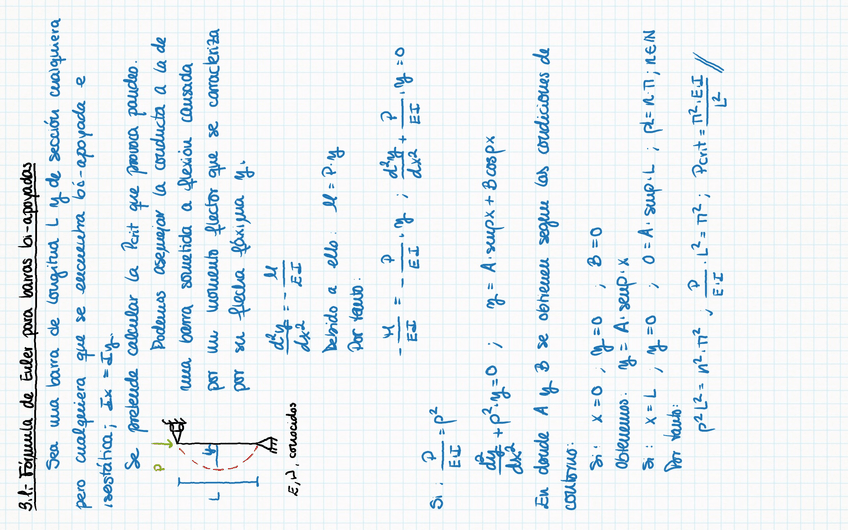 3.1: Fórmula de Euler para barras bi-apoyadas
Sea una barra de longitud L y de sección cualquiera
pero cualquiera que se encuentra bi-apoyada e
isostática; Ix = Iy.
Se pretende calcular la Pcrit que provoca pandeo.
Podemos asemejar la conducta a la de
una barra sometida a flexión causada
por un momento flector que se caracteriza
por su flecha máxima y.
P
y
L
E, ν, conocidos
d²y/dx² = - M/EI
Debido a ello: M = P·y
Por tanto:
- M/EI = - P/EI · y ; d²y/dx² + P/EI · y = 0
Si: P/EI = p²
d²y/dx² + p²·y = 0 ; y = A·sen px + B cos px
En donde A y B se obtienen según las condiciones de
contorno:
Si: x = 0 ; y = 0 ; B = 0
obtenemos: y = A·sen p·x
Si: x = L ; y = 0 ; 0 = A·sen p·L ; pL = n·π ; n∈N
Por tanto:
p²L² = n²·π² , P/E·I · L² = π² ; Pcrit = π²·EI/L² //